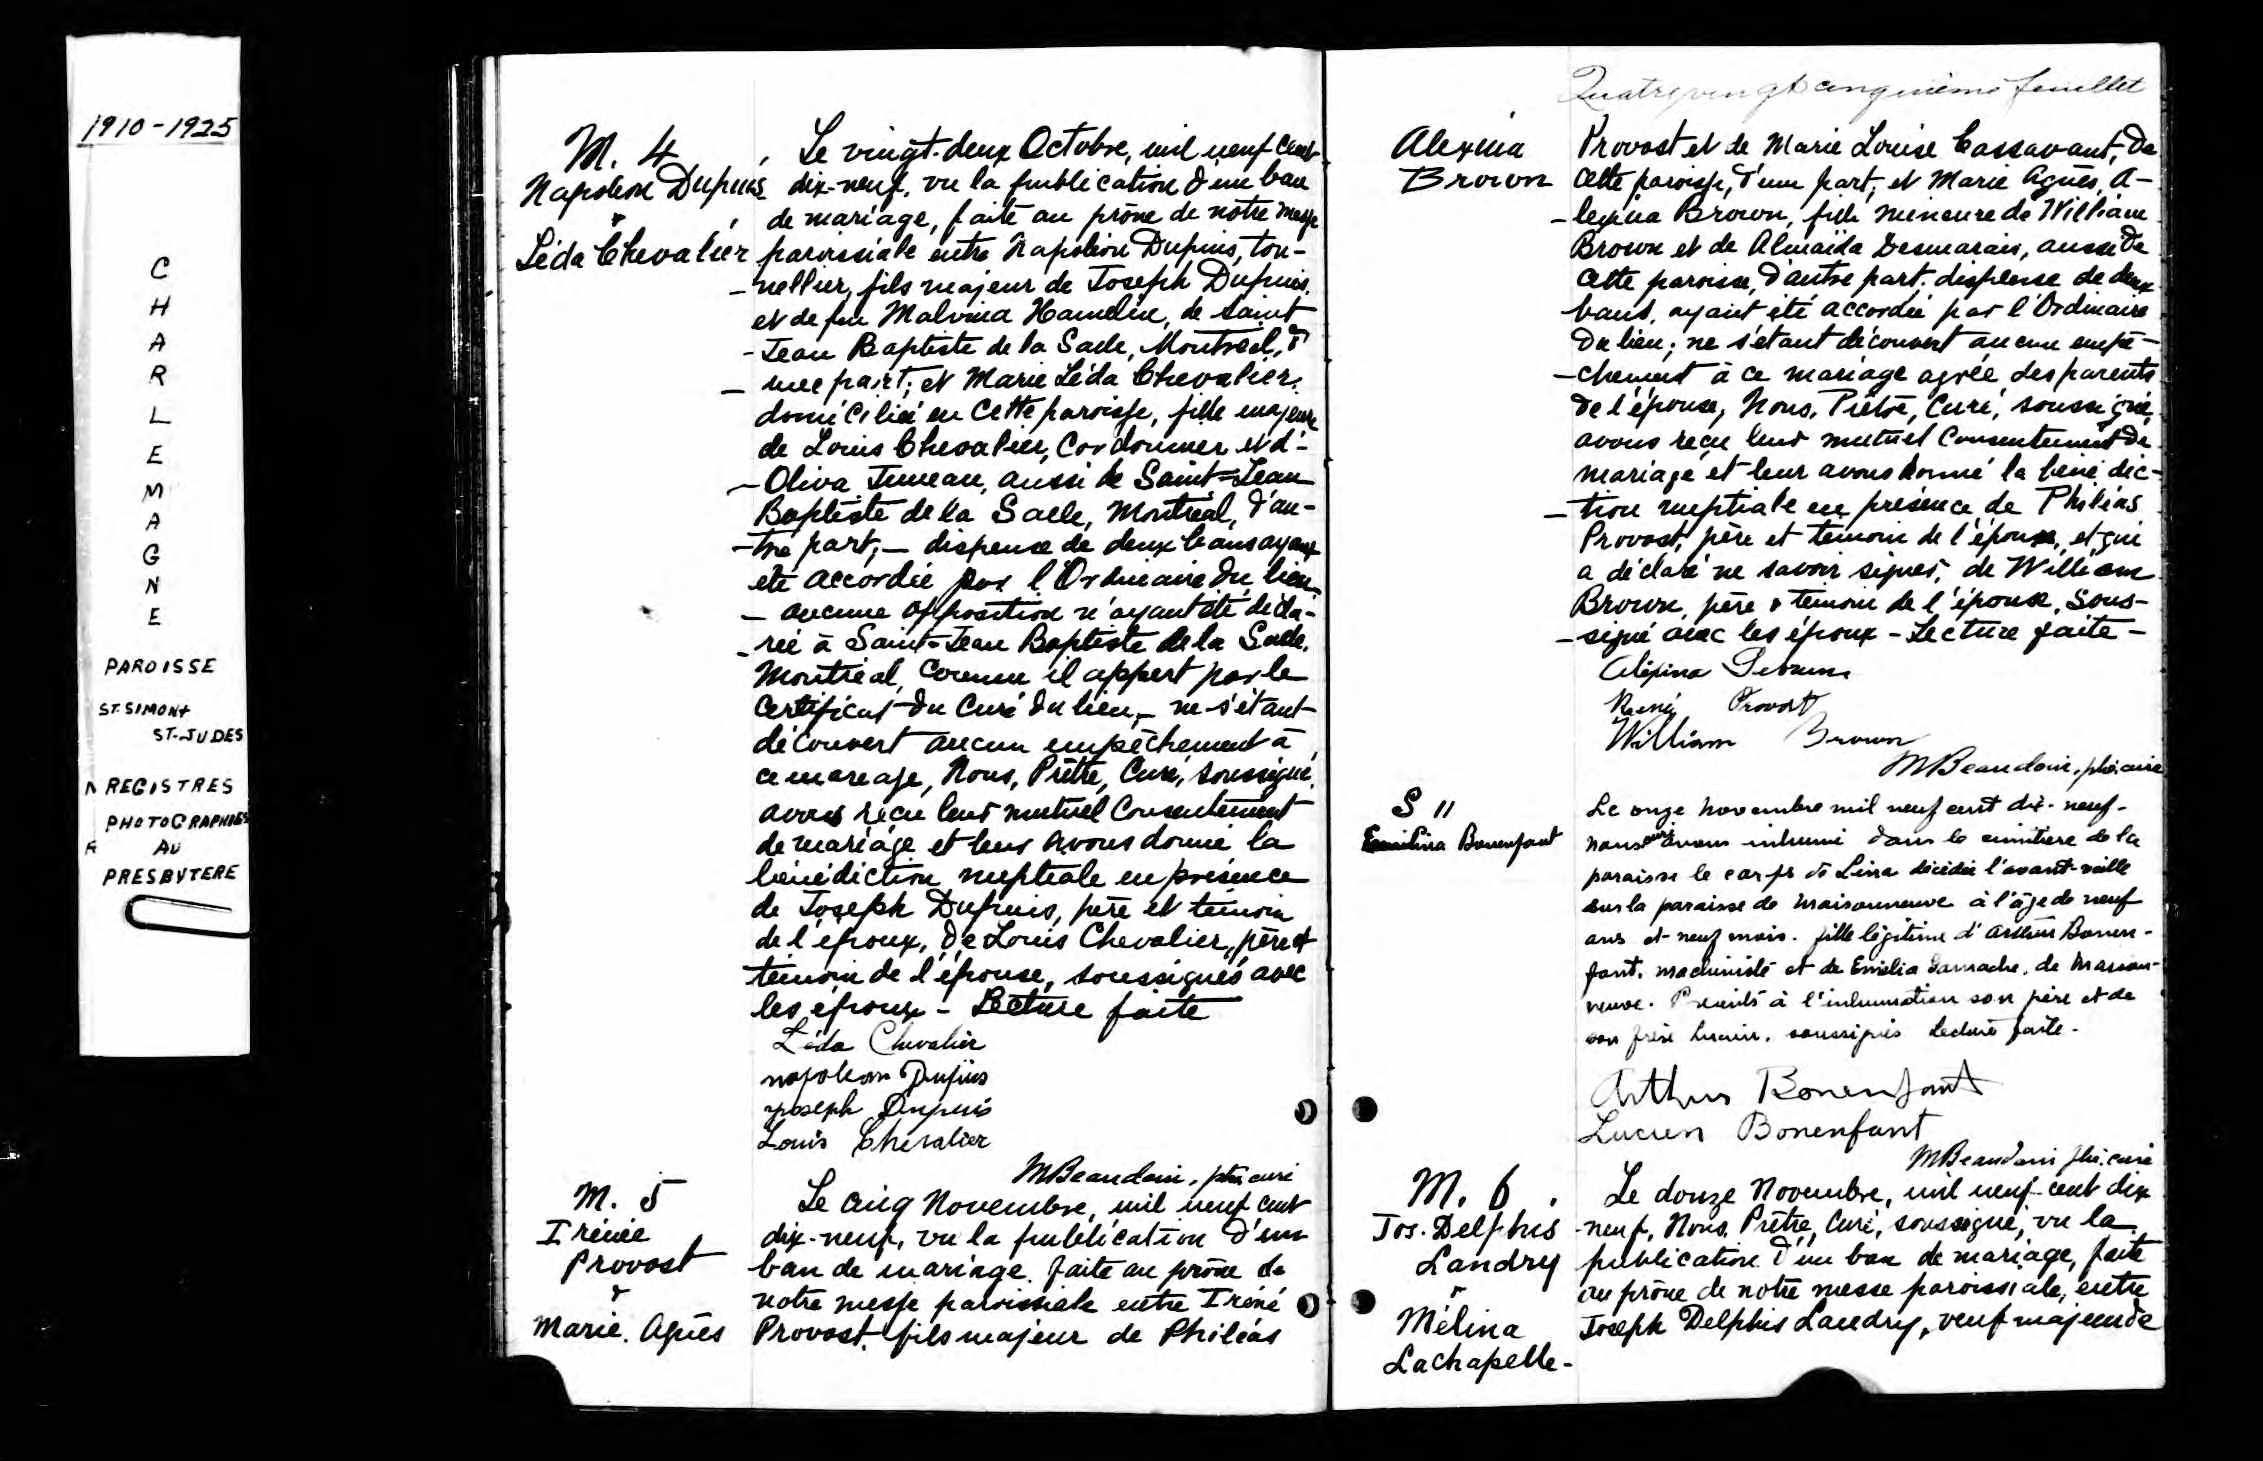 1910-1925
CHARLEMAGNE
PAROISSE
ST. SIMON &
ST-JUDES
REGISTRES
PHOTOGRAPHIÉS
AU
PRESBYTERE
M. 4
Napoléon Dupuis
&
Léda Chevalier
Le vingt-deux Octobre, mil neuf cent
dix-neuf, vu la publication d'un ban
de mariage, faite au prône de notre messe
paroissiale entre Napoléon Dupuis, ton-
-nellier, fils majeur de Joseph Dupuis,
et de feu Malvina Hamelin, de Saint
-Jean Baptiste de la Salle, Montréal, d'
-une part; et Marie Léda Chevalier,
domiciliée en cette paroisse, fille majeure
de Louis Chevalier, Cordonnier et d'-
-Oliva Juneau, aussi de Saint-Jean
Baptiste de la Salle, Montréal, d'au-
-tre part; - dispense de deux bans ayant
été accordée par l'Ordinaire du lieu
- aucune opposition n'ayant été décla-
-rée à Saint-Jean Baptiste de la Salle,
Montréal, comme il appert par le
Certificat du Curé du lieu, - ne s'étant
découvert aucun empêchement à
ce mariage, Nous, Prêtre, Curé, soussigné,
avons reçu leur mutuel Consentement
de mariage et leur avons donné la
bénédiction nuptiale en présence
de Joseph Dupuis, père et témoin
de l'époux, de Louis Chevalier, père et
témoin de l'épouse, soussignés avec
les époux - Lecture faite
Léda Chevalier
napoleon Dupuis
Joseph Dupuis
Louis Chevalier
M Beaudoin, ptre curé
M. 5
Irénée
Provost
&
Marie. Agnès
Le cinq Novembre, mil neuf cent
dix-neuf, vu la publication d'un
ban de mariage, faite au prône de
notre messe paroissiale entre Iréné
Provost, fils majeur de Philéas
Quatrevingt cinquième feuillet
Alexina
Brown
Provost et de Marie Louise Cassavant, de
cette paroisse, d'une part; et Marie Agnès, A-
-lexina Brown, fille mineure de William
Brown et de Almaïda Desmarais, aussi de
cette paroisse, d'autre part; dispense de deux
bans, ayant été accordée par l'Ordinaire
du lieu; ne s'étant découvert aucun empê-
-chement à ce mariage agréé des parents
de l'épouse, Nous, Prêtre, Curé, soussigné,
avons reçu leur mutuel Consentement de
mariage et leur avons donné la bénédic-
-tion nuptiale en présence de Philéas
Provost, père et témoin de l'époux, et qui
a déclaré ne savoir signer, de William
Brown, père & témoin de l'épouse, Sous-
-signé avec les époux - Lecture faite -
Alexina Brown
Provost
William Brown
M Beaudoin, ptre. curé
S 11
Bonenfant
Le onze Novembre mil neuf cent dix-neuf-
nous curé avons inhumé dans le cimetière de la
paroisse le corps de Lina décédée l'avant-veille
sur la paroisse de Maisonneuve à l'âge de neuf
ans et neuf mois. fille légitime d'Arthur Bonen-
fant, machiniste et de Emélia Gamache, de Maison-
neuve. Présents à l'inhumation son père et de
son frère Lucien, soussignés Lecture faite.
Arthur Bonenfant
Lucien Bonenfant
M Beaudoin ptre. curé
M. 6
Jos. Delphis
Landry
&
Mélina
Lachapelle-
Le douze Novembre, mil neuf-cent dix
-neuf, Nous, Prêtre, Curé, soussigné, vu la
publication d'un ban de mariage, faite
au prône de notre messe paroissiale, entre
Joseph Delphis Landry, veuf majeur de